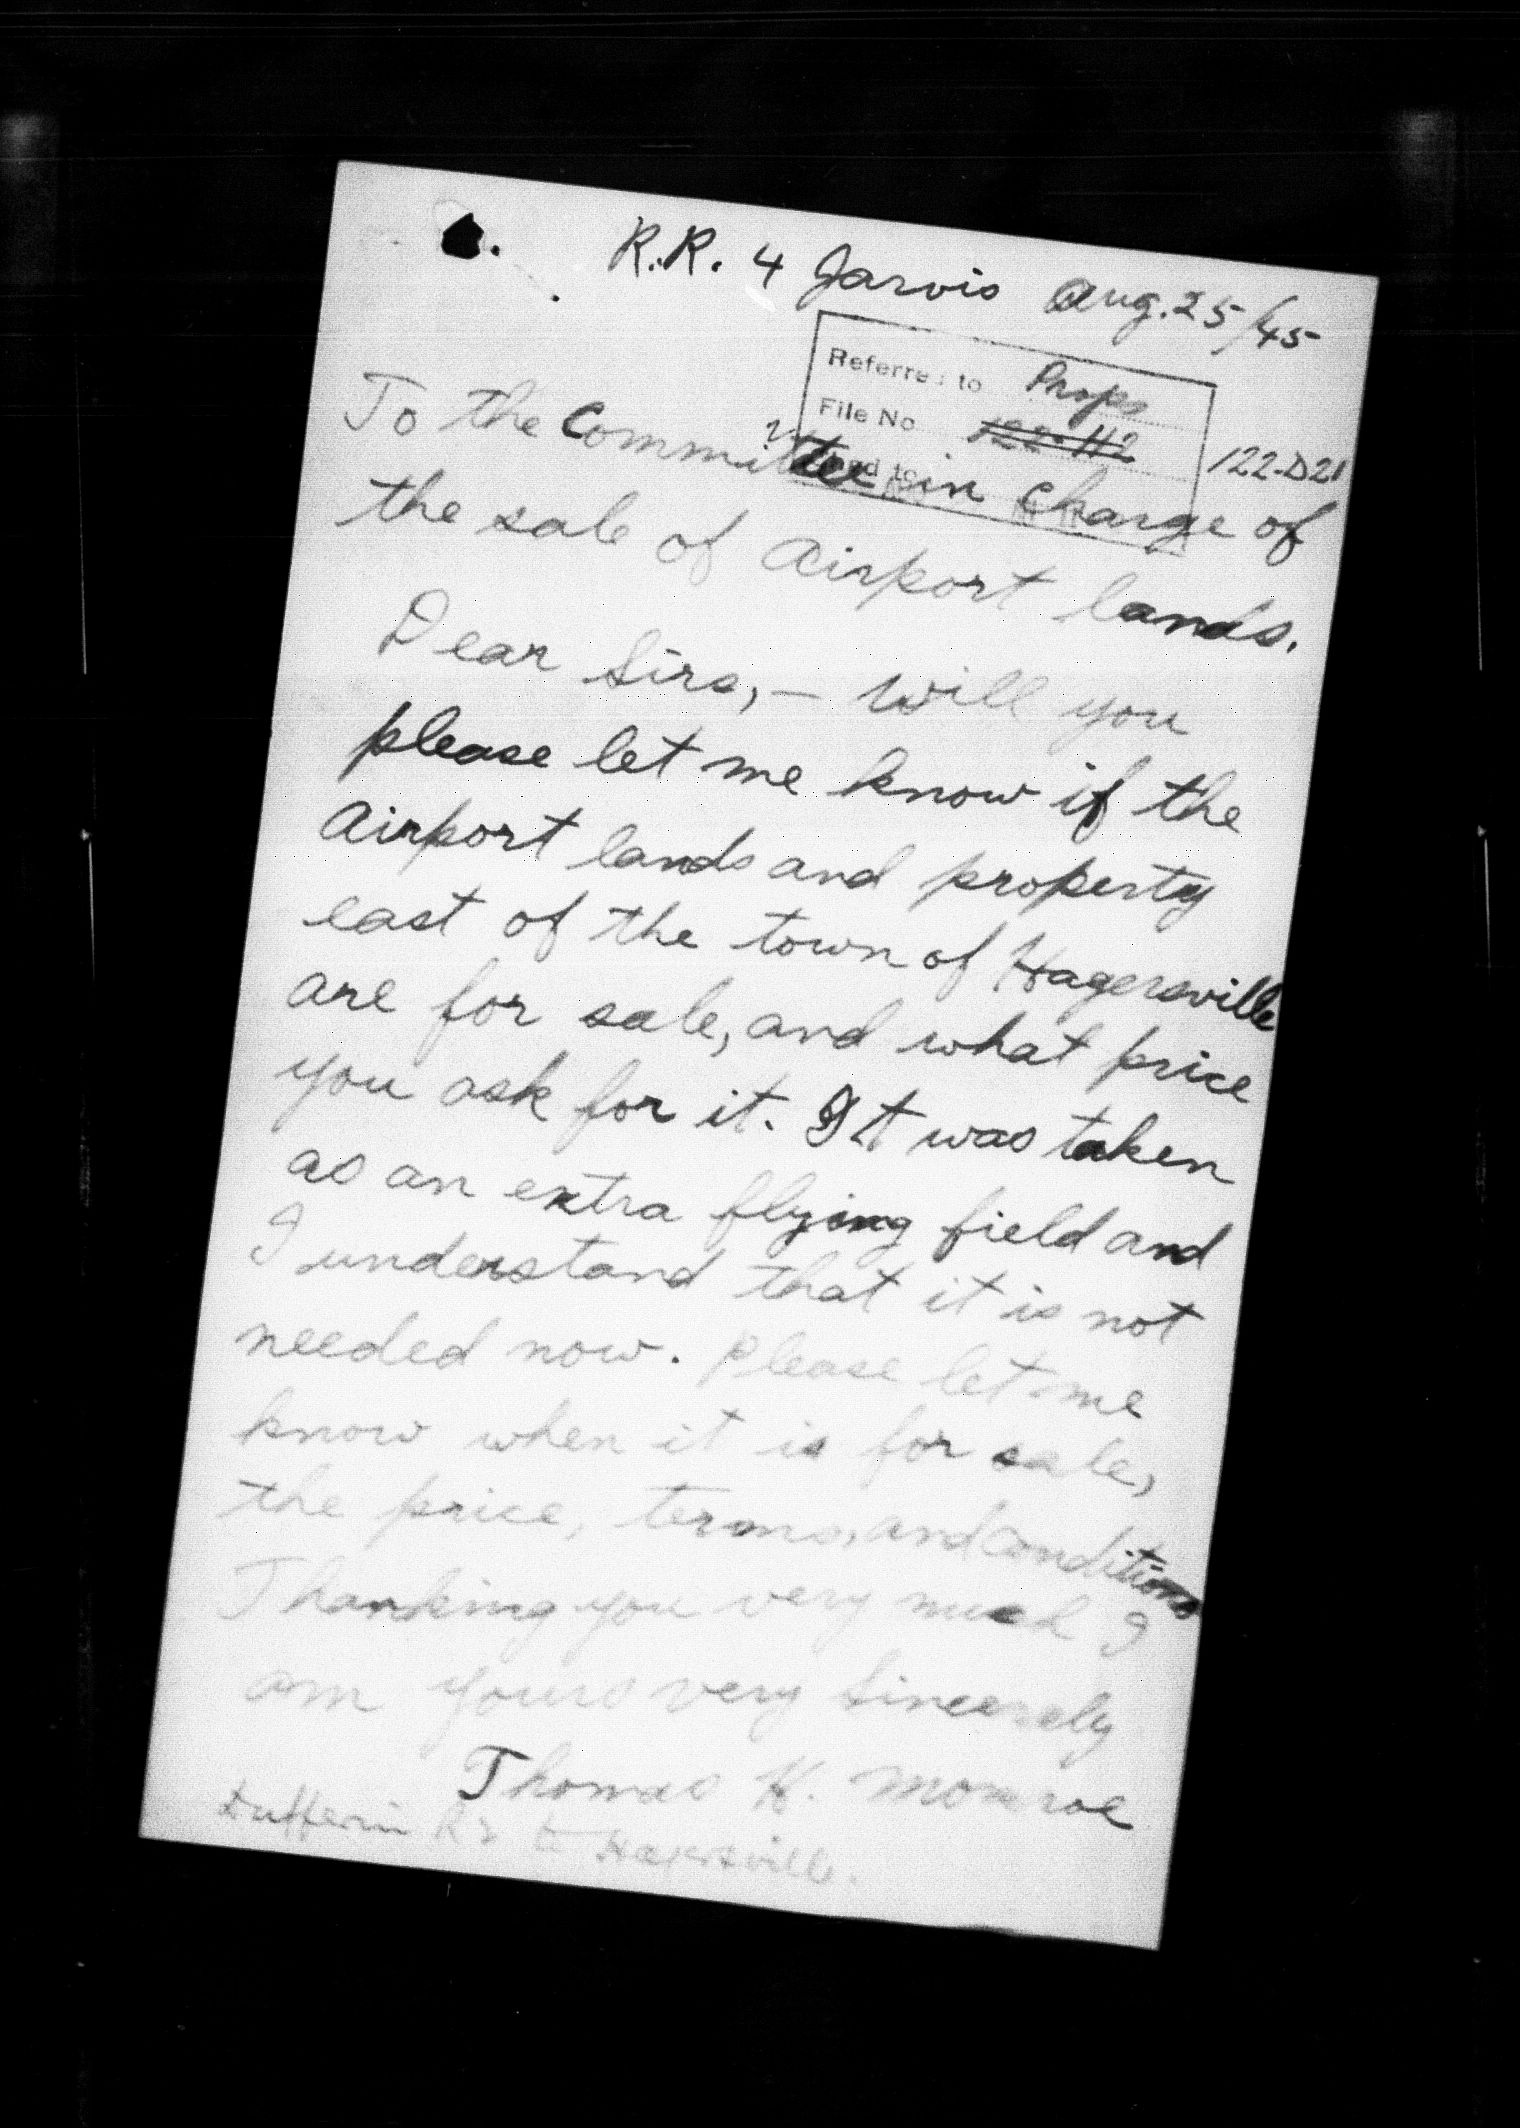 R.R. 4 Jarvis Aug. 25/45
Referred to Props
File No 122-H2 122-D21
To the Committee in charge of
the sale of airport lands.
Dear Sirs,— Will you
please let me know if the
airport lands and property
east of the town of Hagersville
are for sale, and what price
you ask for it. It was taken
as an extra flying field and
I understand that it is not
needed now. Please let me
know when it is for sale,
the price, terms, and conditions
Thanking you very much I
am yours very Sincerely
Thomas H. Monroe
Dufferin